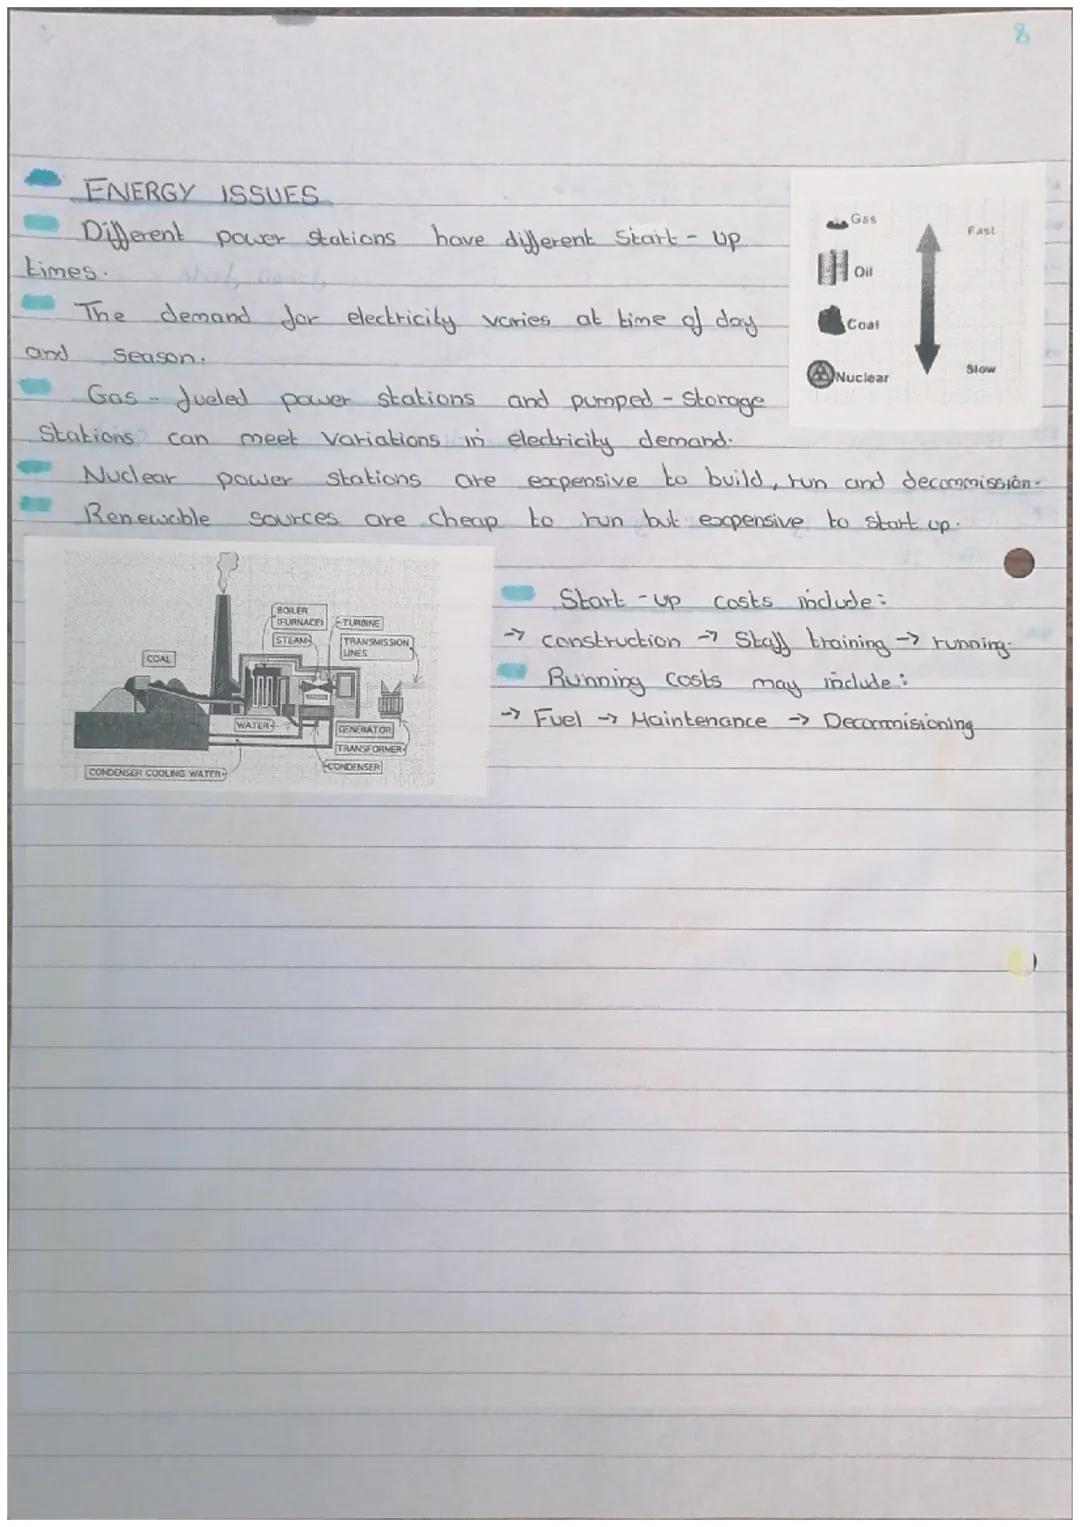 8
ENERGY ISSUES
Different power stations have different start-up
times.
The demand for electricity varies at time of day
and season.
Gas-fueled power stations and pumped-storage
stations can meet variations in electricity demand.
Nuclear power stations are expensive to build, run and decommission.
Renewable sources are cheap to run but expensive to start up.
Gas
Fast
Oil
Coal
Slow
Nuclear
BOILER
(FURNACE)
TURBINE
STEAM
TRANSMISSION
LINES
COAL
WATER
GENERATOR
TRANSFORMER
CONDENSER
CONDENSER COOLING WATER
Start-up costs include:
→ construction → Staff training → running.
Running costs may include:
→ Fuel → Maintenance → Decommisioning